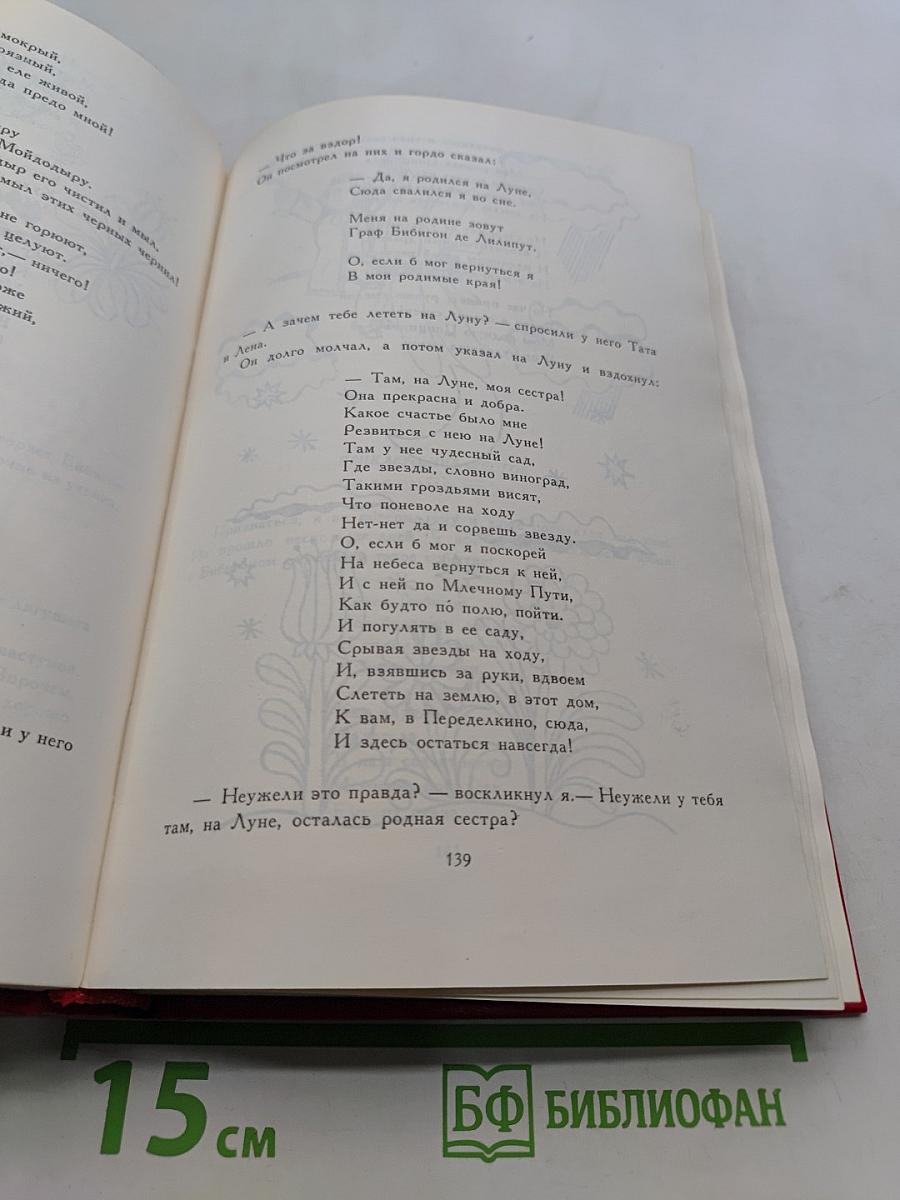 мокрый,
еле живой,
да предо мной!
Мойдодыру.
дыр его чистил и мыл,
мыл этих черных чернил!
не горюют,
целуют.
— ничего!
и у него
— Что за вздор!
Он посмотрел на них и гордо сказал:
— Да, я родился на Луне,
Сюда свалился я во сне.
Меня на родине зовут
Граф Бибигон де Лилипут,
О, если б мог вернуться я
В мои родимые края!
— А зачем тебе лететь на Луну? — спросили у него Тата
и Лена.
Он долго молчал, а потом указал на Луну и вздохнул:
— Там, на Луне, моя сестра!
Она прекрасна и добра.
Какое счастье было мне
Резвиться с нею на Луне!
Там у нее чудесный сад,
Где звезды, словно виноград,
Такими гроздьями висят,
Что поневоле на ходу
Нет-нет да и сорвешь звезду.
О, если б мог я поскорей
На небеса вернуться к ней,
И с ней по Млечному Пути,
Как будто по́ полю, пойти.
И погулять в ее саду,
Срывая звезды на ходу,
И, взявшись за руки, вдвоем
Слететь на землю, в этот дом,
К вам, в Переделкино, сюда,
И здесь остаться навсегда!
— Неужели это правда? — воскликнул я.— Неужели у тебя
там, на Луне, осталась родная сестра?
139
15 см
БФ БИБЛИОФАН